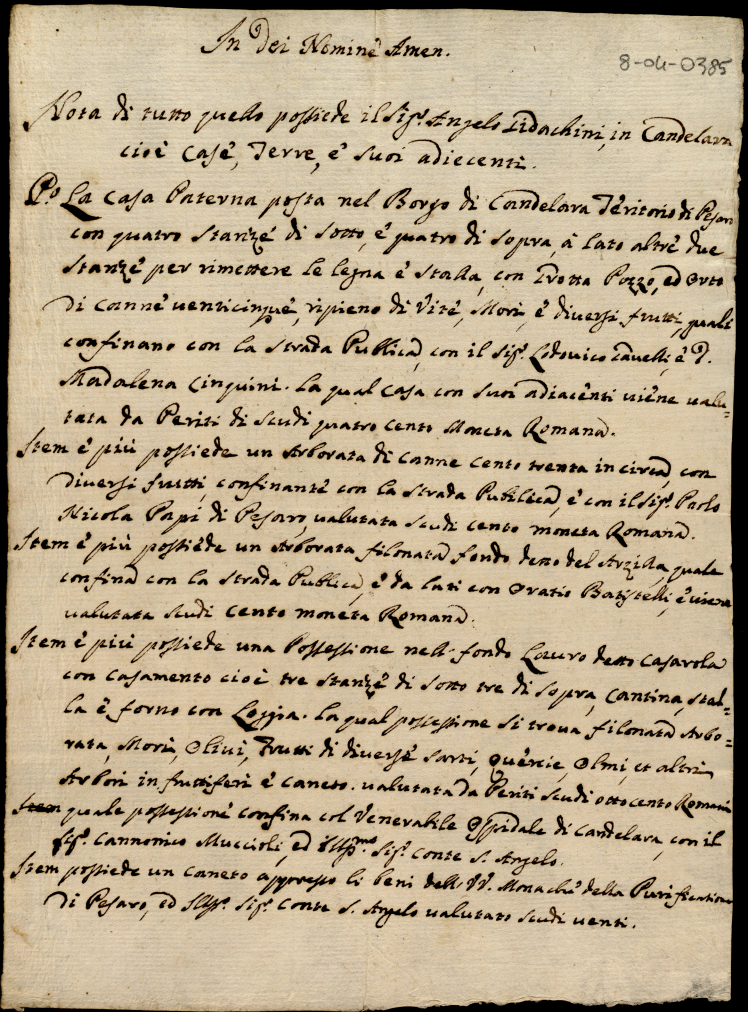 In Dei Nominè Amen.
8-04-0385
Nota di tutto quello possiede il Sig.r Angelo Tidachini, in Candelara
cioè Casè, Terre, è suoi adiecenti.
P.o La Casa Paterna posta nel Borgo di Candelara Tèritorio di Pesaro
con quatro stanzè di sotto, è quatro di sopra, à lato altrè due
stanzè per rimettere le legna è stalla, con Grotta Pozzo, ed Orto
di cannè venticinquè, ripieno di Vitè, Mori, è diversi frutti, quali
confinano con la strada Publica, con il Sig.r Lodovico Cavelli, è D.
Madalena Cinquini. La qual Casa con suoi adiacenti viène valu=
tata da Periti di scudi quatro cento Moneta Romana.
Item è più possiede un Arborata di canne cento trenta in circa, con
diversi frutti, confinantè con la strada Publica, è con il Sig.r Paolo
Nicola Papi di Pesaro, valutata scudi cento moneta Romana.
Item è più possiède un Arborata filonata fondo detto del Arzilla, quale
confina con la strada Publica, è da lati con Oratio Batistelli, è viene
valutata scudi cento moneta Romana.
Item è più possiede una Possessione nell fondo Lauro detto Casarola
con casamento cioè tre stanzè di sotto tre di sopra, Cantina, stal=
la è forno con Loggia. La qual possessione si trova filonata Arbo=
rata, Mori, Olivi, Frutti di diversè sorti, Quèrcie, Olmi, et altri
Arbori in fruttiferi è caneto. valutata da Periti scudi ottocento Romani
Item quale possessionè confina col Venerabile Ospidale di Candelara, con il
Sig.r Cannonico Muccioli, ed Ill.mo Sig.r Conte S. Angelo.
Item possiede un Caneto appresso li beni dell VV. Monachè della Purificatione
di Pesaro, ed Ill.r Sig.r Conte S. Angelo valutato scudi venti.